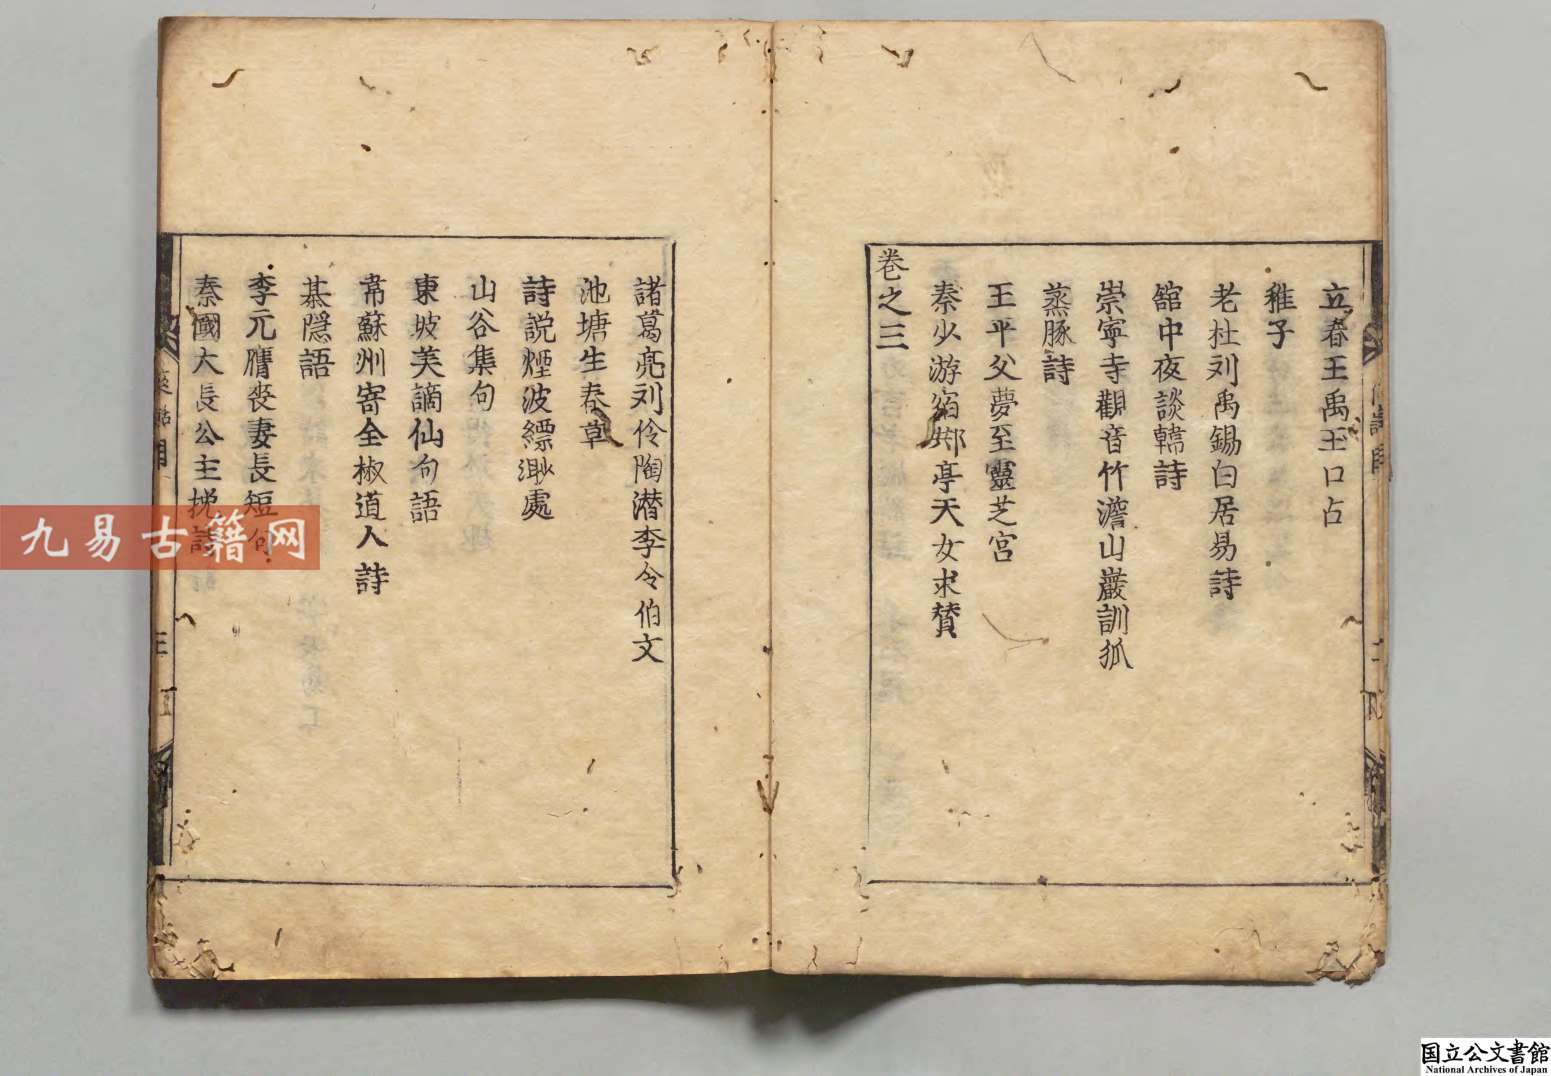 立春王禹玉口占
稚子
老杜刘禹錫白居易詩
舘中夜談韓詩
崇寧寺觀音竹澹山巖訓狐
蒸豚詩
王平父夢至靈芝宮
秦少游宿䢴亭天女求賛
卷之三
諸葛亮刘伶陶潜李令伯文
池塘生春草
詩説煙波縹渺處
山谷集句
東坡美謫仙句語
韋蘇州寄全椒道人詩
棊隠語
李元膺喪妻長短句
秦國大長公主挽詩
目 三
九易古籍网
国立公文書館
National Archives of Japan